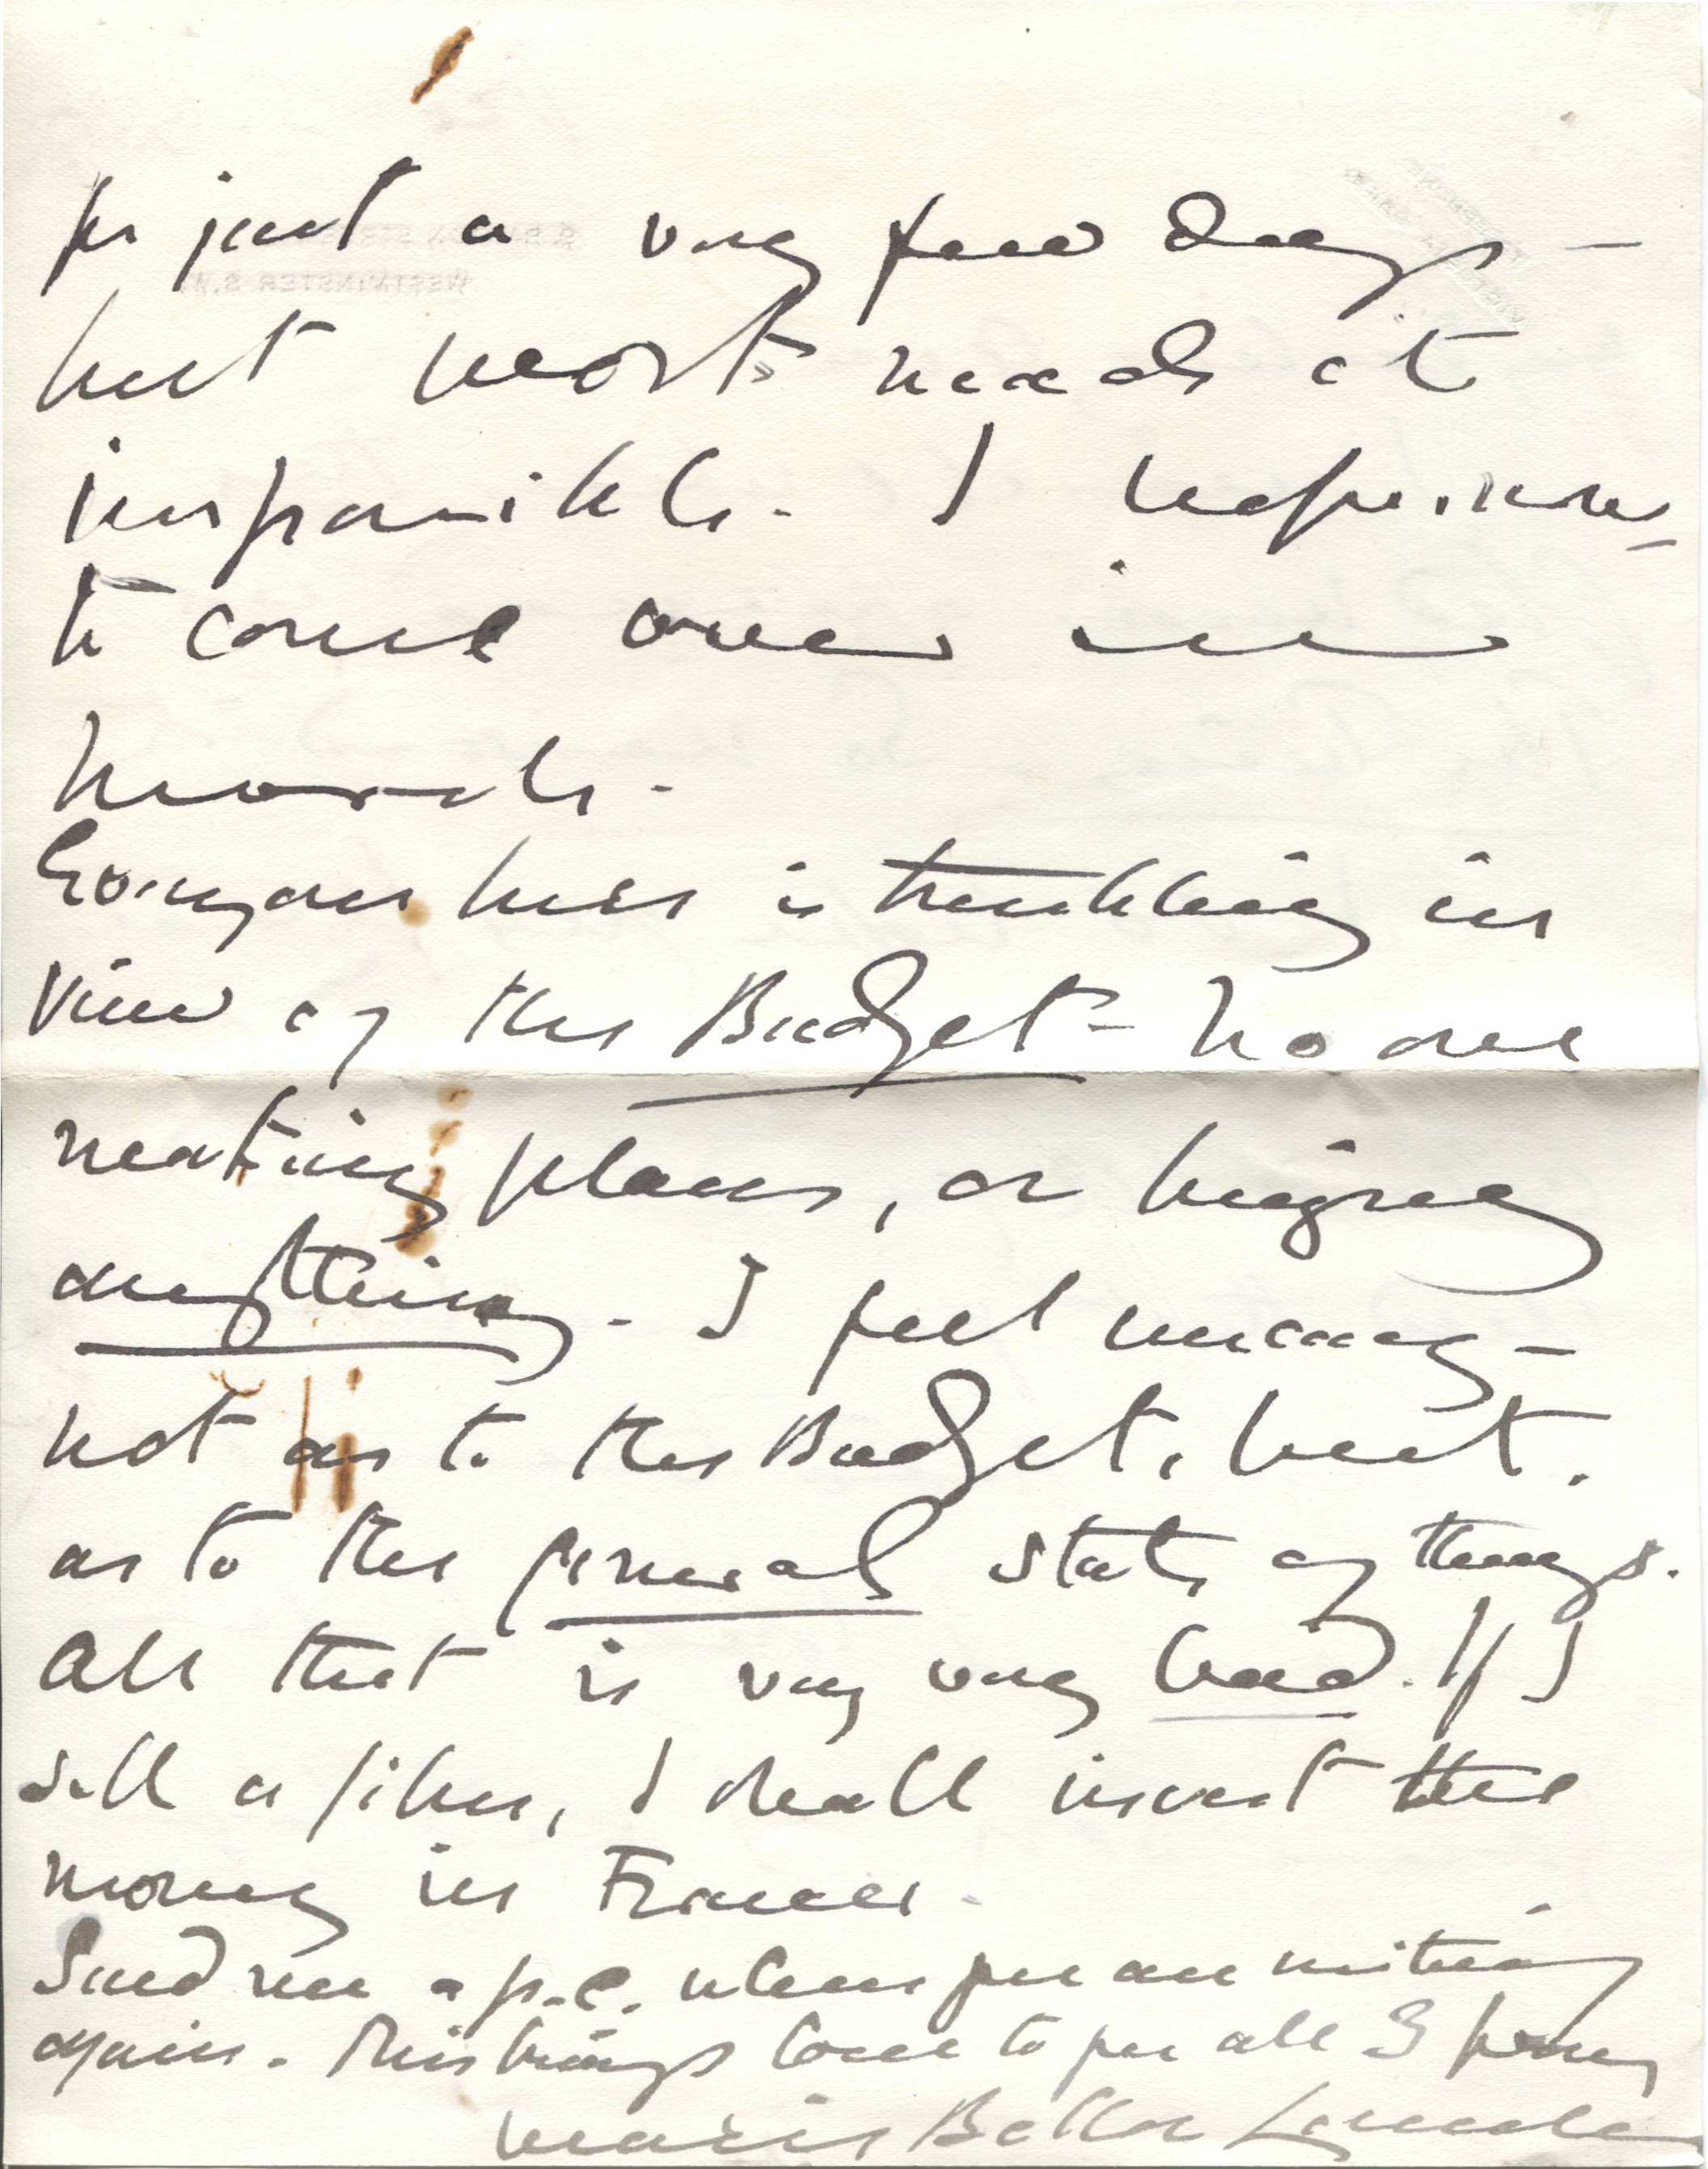 for just a very few days —
but work makes it
impossible. I hope now
to come over in
March.
Everyone here is trembling in
view of the Budget — no one
making plans, or buying
anything. I feel uneasy —
not as to the Budget, but
as to the general state of things.
All that is very very bad. If I
sell a film, I shall invest the
money in France.
Send me a p.c. when you are writing
again. This brings love to you all 3 from
Marie Belloc Lowndes